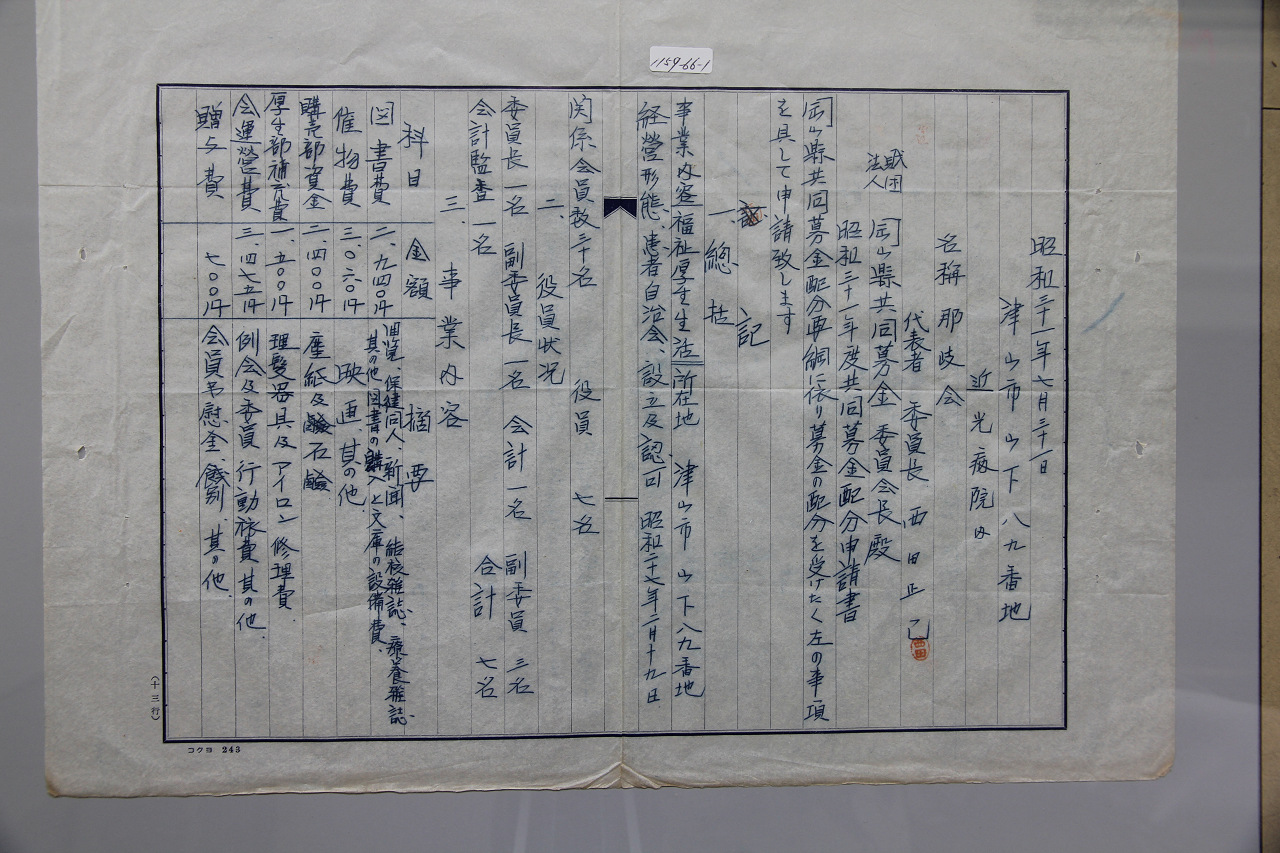 1159-66-1
昭和三十一年七月三十一日
津山市山下八九番地
近光病院内
名称 那岐会
代表者 委員長 西田正己
西田
財団法人 岡山県共同募金委員会長殿
昭和三十一年度共同募金配分申請書
岡山県共同募金配分要綱に依り募金の配分を受けたく左の事項
を具して申請致します
記
一、総括
事業内容 福祉厚生生活 所在地 津山市山下八九番地
経営形態、患者自治会、設立及認可 昭和二十七年二月十九日
関係会員数 三十名 役員 七名
二、役員状况
委員長一名 副委員長一名 会計一名 副委員 三名
会計監査 一名 合計 七名
三、事業内容
科目 金額 摘要
図書費 二、九四〇円 週覧、保健同人、新聞、結核雑誌、療養雑誌、
其の他図書の購入と文庫の設備費、
催物費 三、〇六〇円 映画、其の他、
購売部資金 二、四〇〇円 塵紙及石鹸
厚生部補充費 一、五〇〇円 理髪器具及アイロン修理費、
会運営費 三、四七五円 例会及委員行動旅費其の他、
贈与費 七〇〇円 会員弔慰金、餞別 其の他、
(十三行)
コクヨ 243